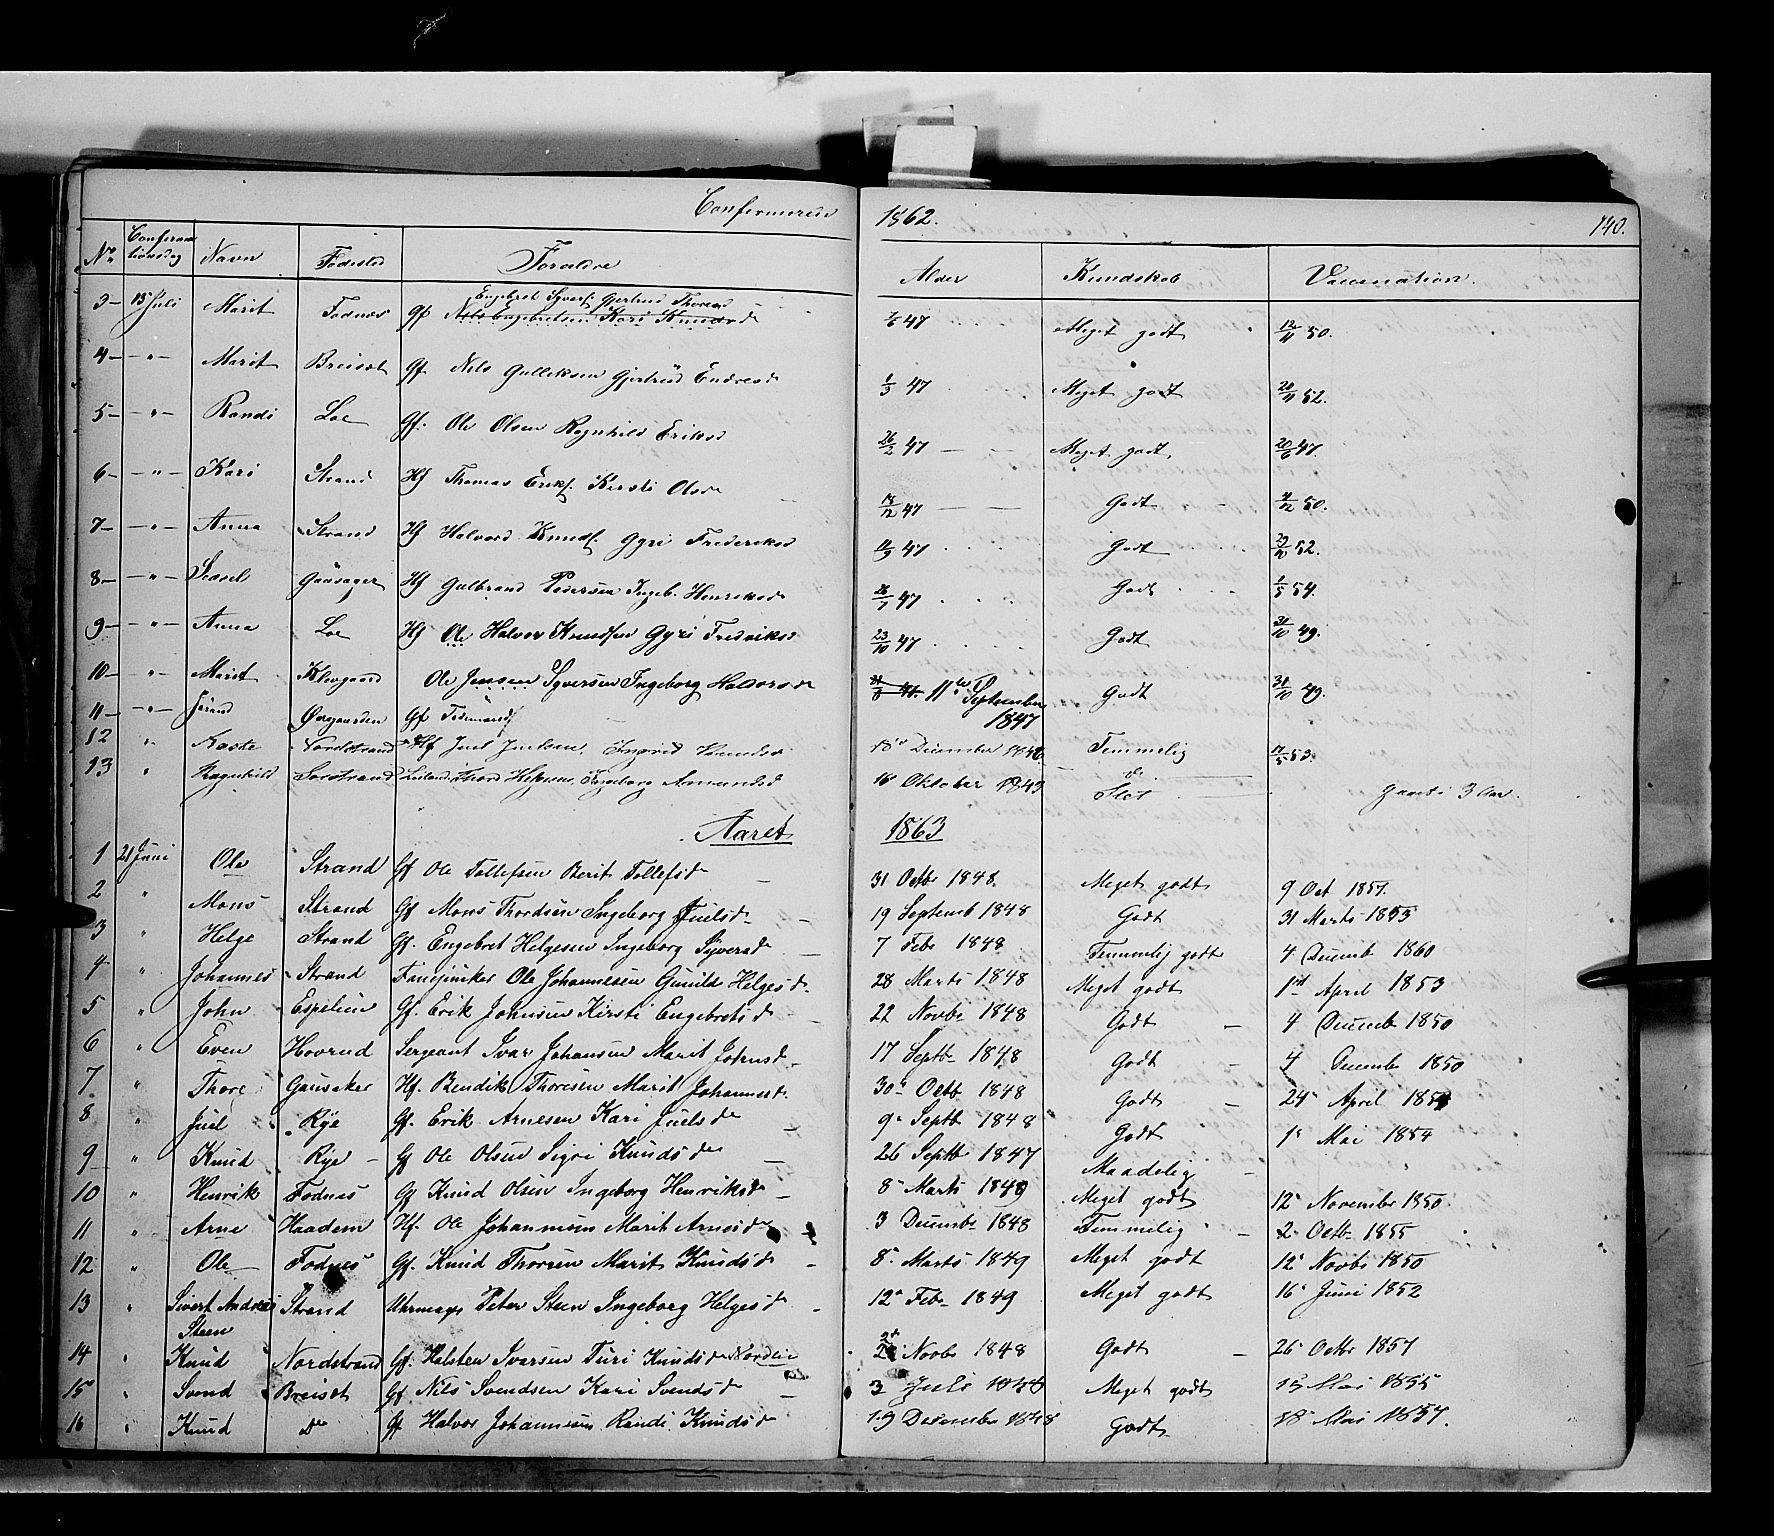 Confirmerede 1862. 140.
No Confirmationsdag Navn Fødested Forældre Alder Kundskab Vaccination.
Engebret Syvers. Gjertrud Thoresd
3 – 15 Juli Marit Fodnæs Gf Nils Engebretsen Kari Knudsd 7/6 47 Meget godt 12/11 50.
4 – " – Marit Breiset Gf Nils Gulliksen Gjertrud Endresd 1/3 47 Meget godt 20/11 52.
5 – " – Randi Loe Gf. Ole Olsen Ragnhild Eriksd 26/2 47 – – Meget godt 20/6 47.
6 – " – Kari Strand Hf Thomas Eriks. Kersti Olsd 18/12 47 – – Godt 4/12 50.
7 – " – Anna Strand Hf Halvord Knuds. Gyri Frederiksd 11/9 47 Godt 29/10 52.
8 – " – Sissel Gaasager Hf Gulbrand Pedersen Ingeb. Henriksd 26/7 47 Godt 1/5 54.
9 – " – Anna Loe Hf Ole Halvor Knudsen Gyri Fredriksd 23/10 47 Godt 31/10 49.
10 – " – Marit Klevgaard Ole Jensen Syversen Ingeborg Halvorsd 11te September Godt 31/10 49.
1847
11 – " – Jørand Øvrgaarden Gf
12 " Kaste Nordstrand Hf Juel Juelsen Ingrid Knudsd 18d December 1846 Temmelig 11/5 53.
13 " Ragnhild Sørstrand Thord Helgesen, Ingeborg Amundsd 16 Oktober 1843 Slet Gaaet i 3 Aar.
Aaret 1863
1 21 Juni Ole Strand Gf Ole Tollefsen Berit Tollefsd 31 Octbr 1848. Meget godt 9 Oct 1857.
2 " Mons Strand Gf Mons Thordsen Ingeborg Juelsd 19 Septemb 1848 Godt 31 Marts 1853
3 " Helge Strand Gf. Engebret Helgesen Ingeborg Syversd 7 Febr 1848 Temmelig godt 4 Decemb 1860
4 " Johannes Strand Fanejunker Ole Johannesen Gunild Helgesd. 28 Marts 1848 Meget godt 1st April 1853
5 " John Espelien Gf. Erik Johnsen Kirsti Engebretsd 22 Novbr 1848 Godt – 4 Decembr 1850
6 " Even Hovrud Sergeant Ivar Johansen Marit Johnsd 17 Septbr 1848 Godt – 4 Decembr 1850
7 " Thore Gausaker Hf. Bendik Thoresen Marit Johannesd. 30d Octb 1848 Godt – 24d April 185
8 " Juel Rye Gf. Erik Arnesen Kari Juelsd 9d Septb 1848 Godt 1d Mai 1854
9 " Knud Rye – Gf Ole Olsen Sigri Knudsd 26 Septb 1847 Maadelig –
10 " Henrik Fodnæs Gf Knud Olsen Ingeborg Henriksd 8d Marts 1849 Meget godt 12d Novembr 1850
11 " Arne Haadem Hf. Ole Johannesen Marit Arnesd 3 Decembr 1848 Temmelig – 2d Octbr 1855
12 " Ole Fodnes Gf. Knud Thoresen Marit Knudsd 8d Marts 1849 Meget godt 12d Novbr 1850
13 " Sivert Andreas Strand Uhrmager Peter Steen Ingeborg Helgesd 12d Febr 1849 Meget godt 16d Juni 1852
Steen
14 " Knud Nordstrand Gf. Halsten Ivarsen Turi Knudsd Nordlie 2 Novbr 1848 Godt – 26d Octbr 1857
15 " Svend Breiset Gf Nils Svendsen Kari Svendsd 3 Juli 1848 Meget godt 15 Mai 1855
16 " Knud Do Gf Halvor Johannesen Randi Knudsd 19 December 1848 Godt 18d Mai 1857.